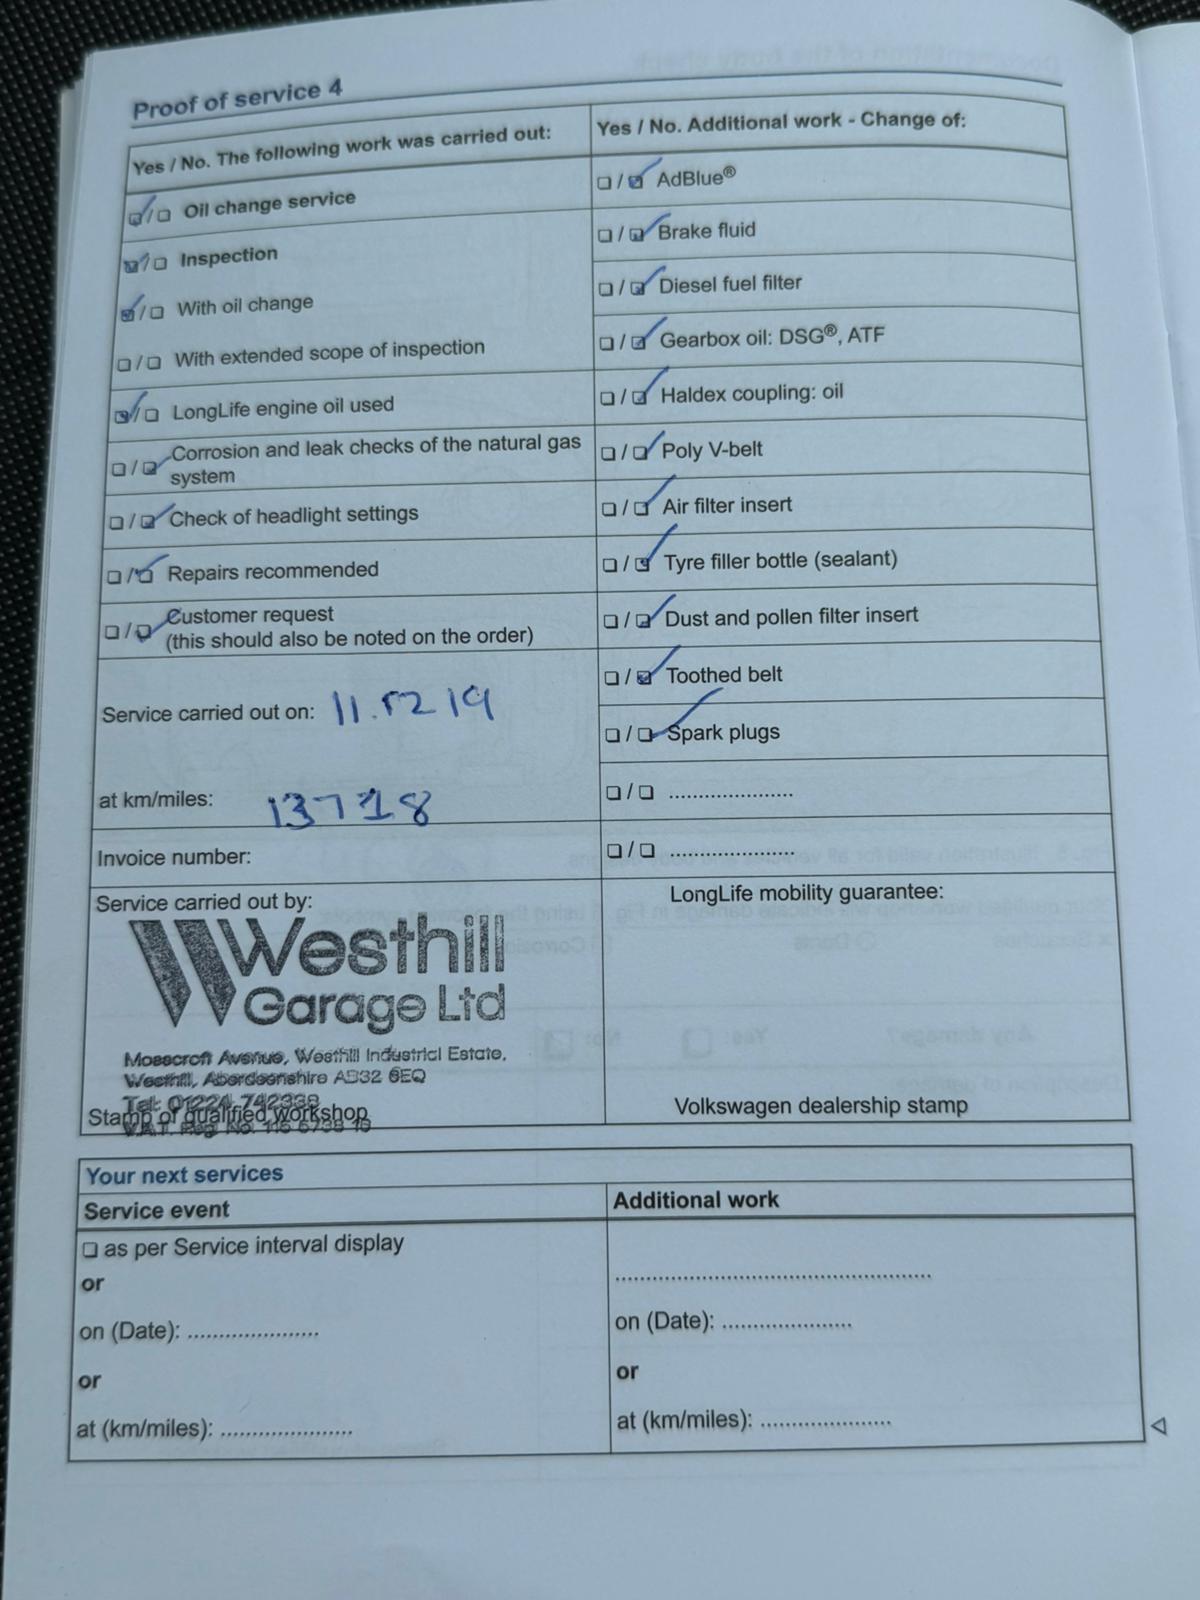 Proof of service 4
Yes / No. The following work was carried out:
☑/☐ Oil change service
☑/☐ Inspection
☑/☐ With oil change
☐/☐ With extended scope of inspection
☑/☐ LongLife engine oil used
☐/☑ Corrosion and leak checks of the natural gas
system
☐/☑ Check of headlight settings
☐/☑ Repairs recommended
☐/☑ Customer request
(this should also be noted on the order)
Service carried out on:
at km/miles: 13718
Invoice number:
Service carried out by:
Westhill
Garage Ltd
Mosscroft Avenue, Westhill Industrial Estate,
Westhill, Aberdeenshire AB32 6EQ
Tel: 01224 742338
Stamp of qualified workshop
V.A.T. Reg. No.
Yes / No. Additional work - Change of:
☐/☑ AdBlue®
☐/☑ Brake fluid
☐/☑ Diesel fuel filter
☐/☑ Gearbox oil: DSG®, ATF
☐/☑ Haldex coupling: oil
☐/☑ Poly V-belt
☐/☑ Air filter insert
☐/☑ Tyre filler bottle (sealant)
☐/☑ Dust and pollen filter insert
☐/☑ Toothed belt
☐/☑ Spark plugs
☐/☐ ....................
☐/☐ ....................
LongLife mobility guarantee:
Volkswagen dealership stamp
Your next services
Service event
☐ as per Service interval display
or
on (Date): .....................
or
at (km/miles): .....................
Additional work
...................................................
on (Date): .....................
or
at (km/miles): .....................